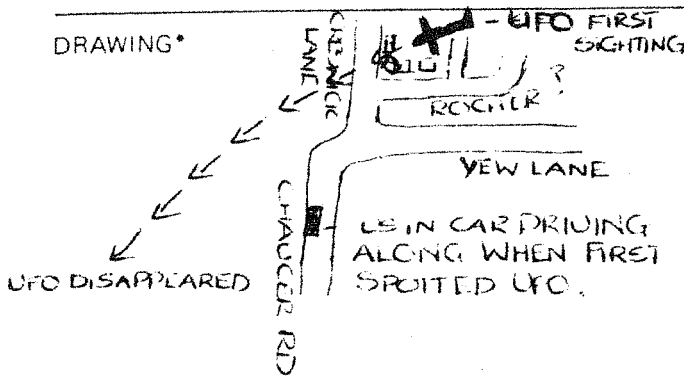 DRAWING*
LANE
- UFO FIRST
SIGHTING
ROCHER ?
YEW LANE
CHAUCER RD
US IN CAR DRIVING
ALONG WHEN FIRST
SPOTTED UFO.
UFO DISAPPEARED